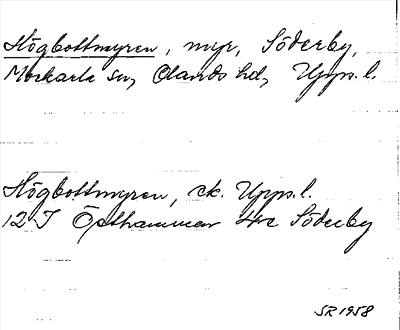 Högbottmyren, myr, Söderby,
Morkarla sn, Olands hd, Upps. l.
Högbottmyren, ek. Upps. l.
12 I Östhammar 4 c Söderby
SR 1958